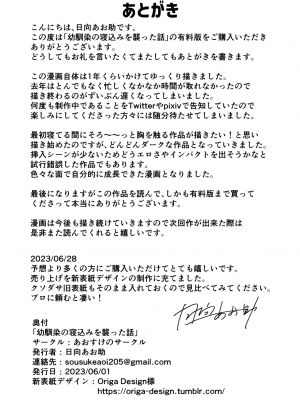 あとがき
こんにちは、日向あお助です。
この度は「幼馴染の寝込みを襲った話」の有料版をご購入いただき
ありがとうございます。
どうしてもお礼を言いたくてまたしてもあとがきを書きます。
この漫画自体は1年くらいかけてゆっくり描きました。
去年はとんでもなく忙しくなかなか時間が取れなかったので
描き終わるのがずいぶん遅くなってしまいました。
何度も制作中であることをTwitterやpixivで告知していたので
楽しみにしてくださった方々には随分待たせてしまいました。
最初寝てる間にそろ〜〜っと胸を触る作品が描きたい！と思い
描き始めたのですが、どんどんダークな作品となっていきました。
挿入シーンが少ないためどうエロさやインパクトを出そうかなと
試行錯誤した作品でもあります。
色々な面で自分的に成長できた漫画となりました。
最後になりますがこの作品を読んで、しかも有料版まで買って
くださって本当にありがとうございます。
漫画は今後も描き続けていきますので次回作が出来た際は
是非また読んでくれると嬉しいです。
2023/06/28
予想より多くの方にご購入いただけてとても嬉しいです。
売り上げを新表紙デザインの制作に充てました。
クソダサ旧表紙もそのまま入れておくので見比べてみてください。
プロに頼むと凄い！
日向あお助
奥付
「幼馴染の寝込みを襲った話」
サークル：あおすけのサークル
発行者：日向あお助
連絡先：sousukeaoi205@gmail.com
発行日：2023/06/01
新表紙デザイン：Origa Design様
https://origa-design.tumblr.com/